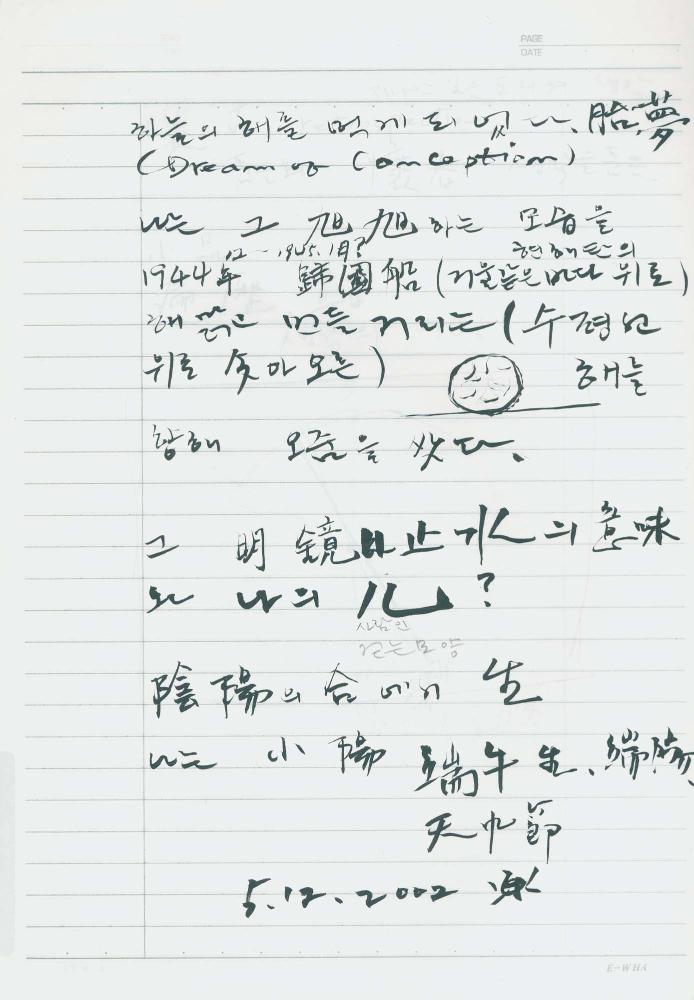 PAGE
DATE
하늘의 해를 먹게 되었다. 胎夢
(Dream of Conception)
나는 그 旭旭하는 모습을
12 - 1945. 1月?
현해탄의
1944年 歸國船 (거울같은 바다 위로)
해 맑고 번들거리는 (수평선
위로 솟아 오른) 해를
향해 오줌을 쌌다.
그 明鏡止 의 意味
와 나의 儿?
사람인
걷는모양
陰陽의 合에서 生
나는 小陽 端午生, 端陽,
天中節
5.12.2002
E-WHA